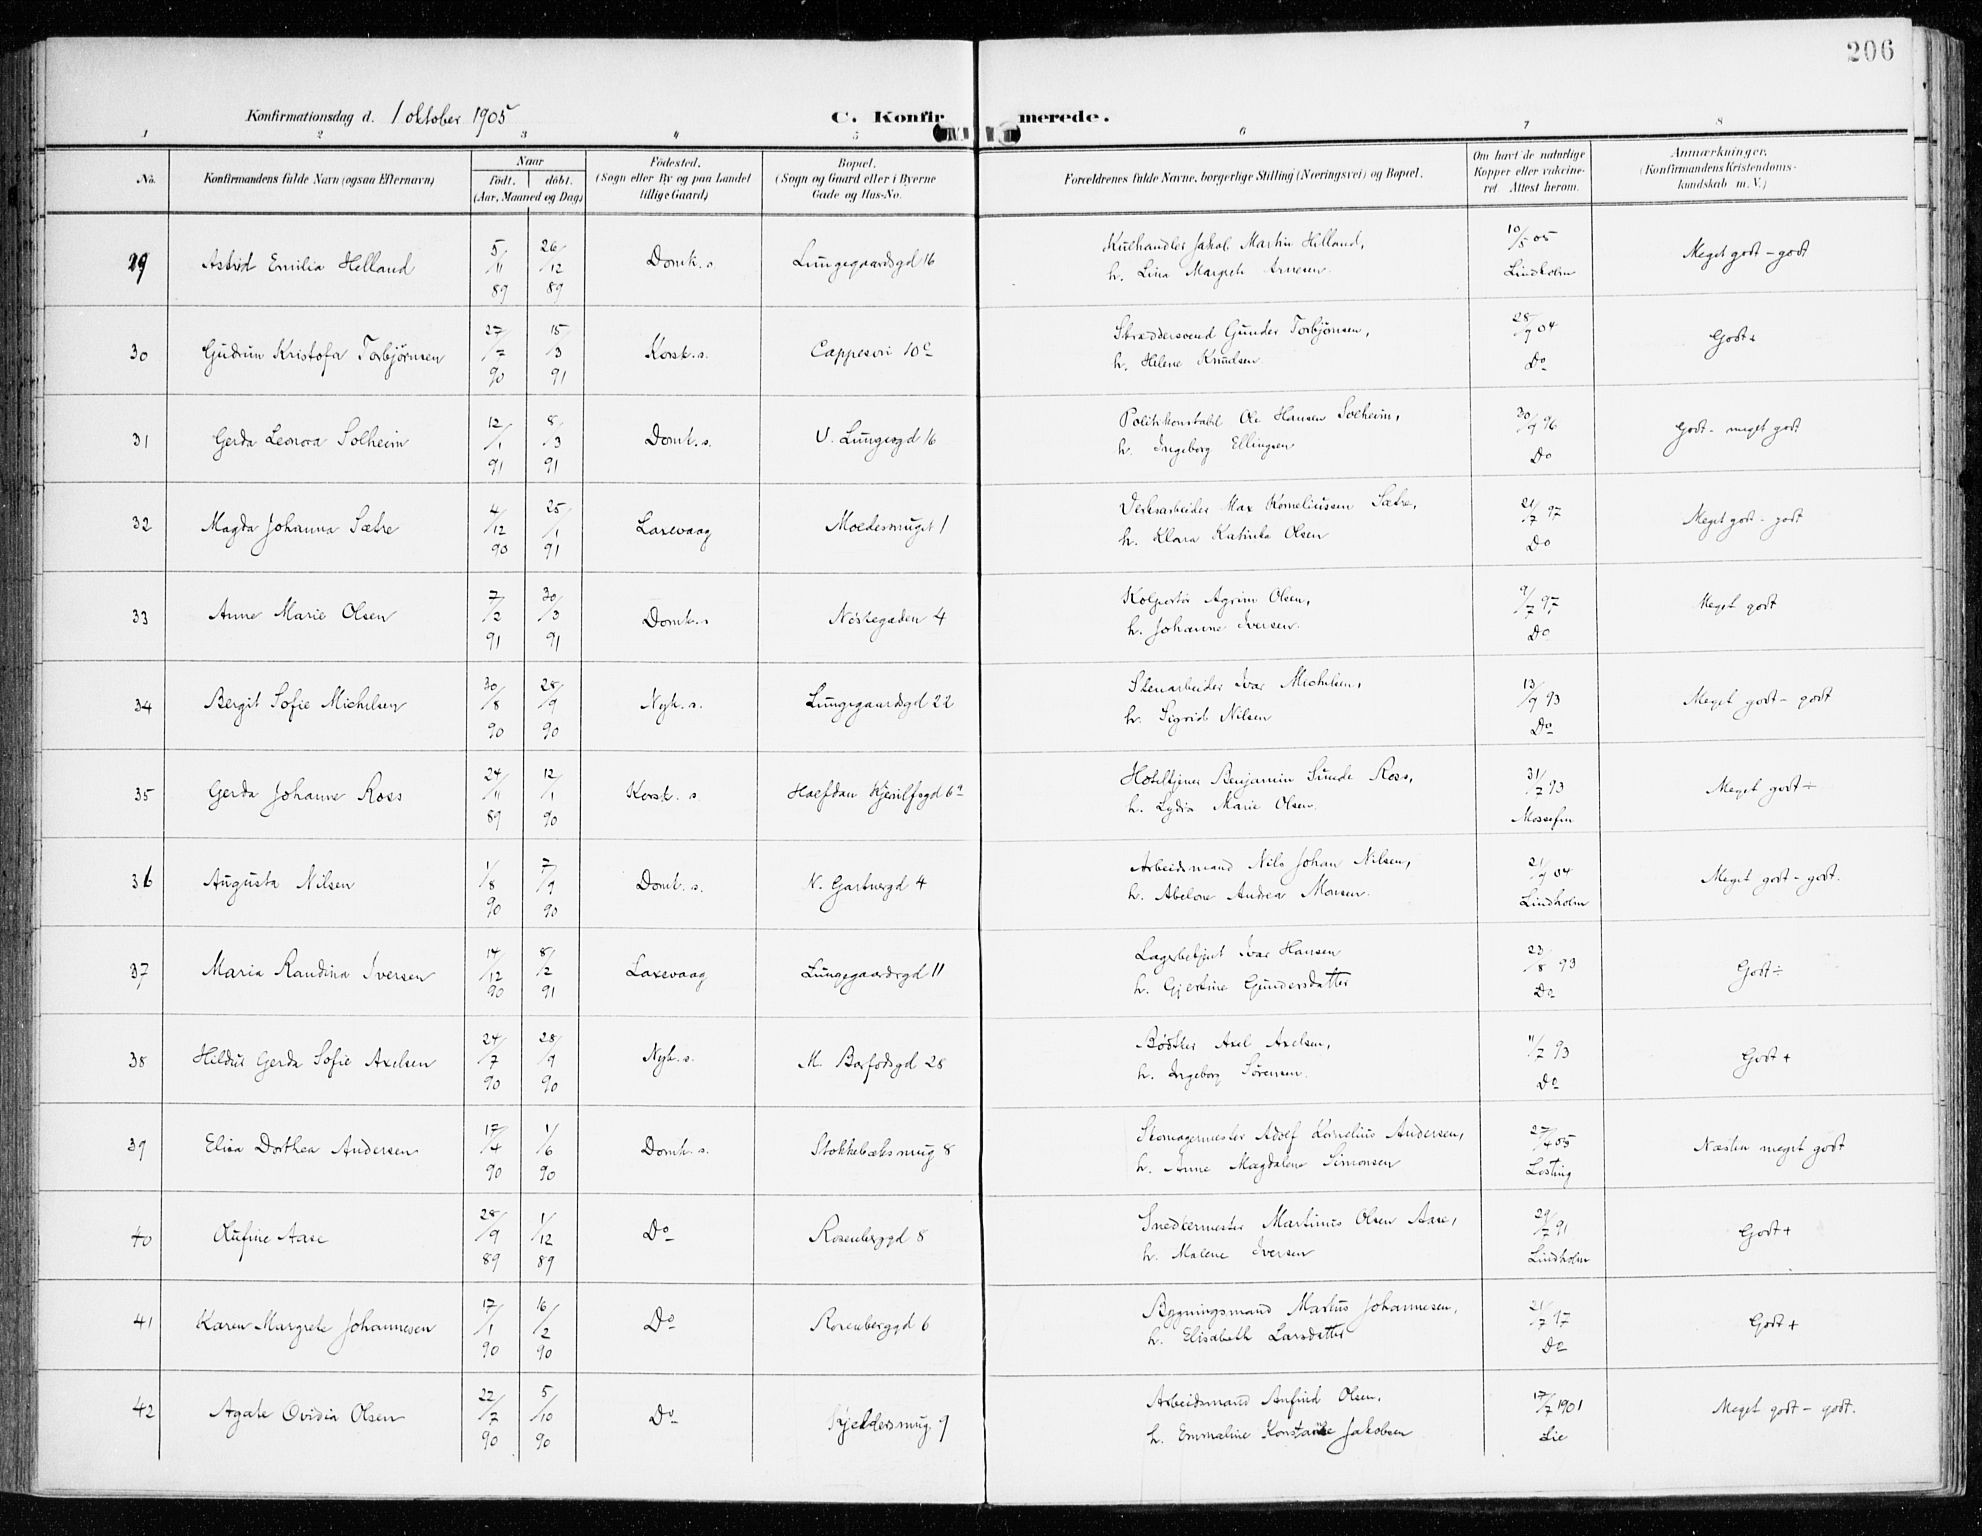 206
Konfirmationsdag d. 1 oktober 1905
C. Konfirmerede.
1 2 3 4 5 6 7 8
No.
Konfirmandens fulde Navn (ogsaa Efternavn)
Naar
født. døbt.
(Aar, Maaned og Dag)
Födested.
(Sogn eller By og paa Landet
tillige Gaard)
Bopæl.
(Sogn og Gaard eller i Byerne
Gade og Hus-No.
Forældrenes fulde Navne, borgerlige Stilling (Næringsvei) og Bopæl.
Om havt de naturlige
Kopper eller vakcine-
ret. Attest herom.
Anmærkninger.
(Konfirmandens Kristendoms-
kundskab m. V.)
29 Astrid Emilia Helland 5/11 89 26/12 89 Domk. s. Lungegaardsgd 16 Kulhandler Jakob Martin Helland, 10/5 05 Meget godt - godt
h. Lina Margrete Arnesen Lindholm
30 Gudrun Kristofa Torbjørnsen 27/7 90 15/3 91 Korsk. s. Cappesvei 10c Skræddersvend Gunder Torbjörnsen, 28/9 04 Godt+
h. Helene Knudsen Do
31 Gerda Leonora Solheim 12/1 91 8/3 91 Domk. s. V. Lungegd 16 Politikonstabel Ole Hansen Solheim, 30/9 96 Godt - meget godt
h. Ingeborg Ellingsen Do
32 Magda Johanna Sætre 4/12 90 25/1 91 Laxevaag Moedesmuget 1 Verksarbeider Max Korneliussen Sætre, 21/7 97 Meget godt - godt
h. Klara Katinka Olsen Do
33 Anne Marie Olsen 7/2 91 30/3 91 Domk. s Nöstegaden 4 Kolportör Agrim Olsen, 9/7 97 Meget godt
h. Johanne Iversen. Do
34 Bergit Sofie Michelsen 30/8 90 28/9 90 Nyk. s. Lungegaardsgd 22 Stenarbeider Ivar Michelsen, 13/9 93 Meget godt - godt
h. Sigrid Nilsen Do
35 Gerda Johanne Ross 24/11 89 12/1 90 Korsk. s. Halfdan Kjerulfsgd 6a Hoteltjener Benjamin Sunde Ross, 31/7 93 Meget godt ÷
h. Lydia Marie Olsen. Mossefin
36 Augusta Nilsen 1/8 90 7/9 90 Domk. s. N. Gartnergd 4 Arbeidsmand Nils Johan Nilsen, 21/9 04 Meget godt - godt.
h. Abelone Andrea Monsen. Lindholm
37 Maria Randina Iversen 14/12 90 8/2 91 Laxevaag Lungegaardsgd 11 Lagerbetjent Ivar Hansen 23/8 93 Godt ÷
h. Gjertine Gundersdatter Do
38 Hildus Gerda Sofie Axelsen 24/7 90 28/9 90 Nyk. s. M. Barfodsgd 28 Bödker Axel Axelsen, 11/7 93 Godt +
h. Ingeborg Sörensen. Do
39 Elisa Dorthea Andersen 17/4 90 1/6 90 Domk. s. Stokkebæksmug 8 Skomagermester Adolf Kornelius Andersen, 27/4 05 Næsten meget godt
h. Anne Magdalene Simonsen Losting
40 Rufine Aase 28/9 89 1/12 89 Do Rosenberggd 8 Snedkermester Martinus Olsen Aase, 29/7 91 Godt +
h. Malene Iversen Lindholm
41 Karen Margrete Johannesen 17/1 90 16/2 90 Do Rosenberggd 6 Bygningsmand Markus Johannesen, 21/7 97 Godt +
h. Elisabeth Larsdatter Do
42 Agate Ovidia Olsen 22/7 90 5/10 90 Do Kjeldersmug. 9 Arbeidsmand Anfind Olsen, 17/7 1901 Meget godt - godt.
h. Emmaline Konstanse Jakobsen Lie